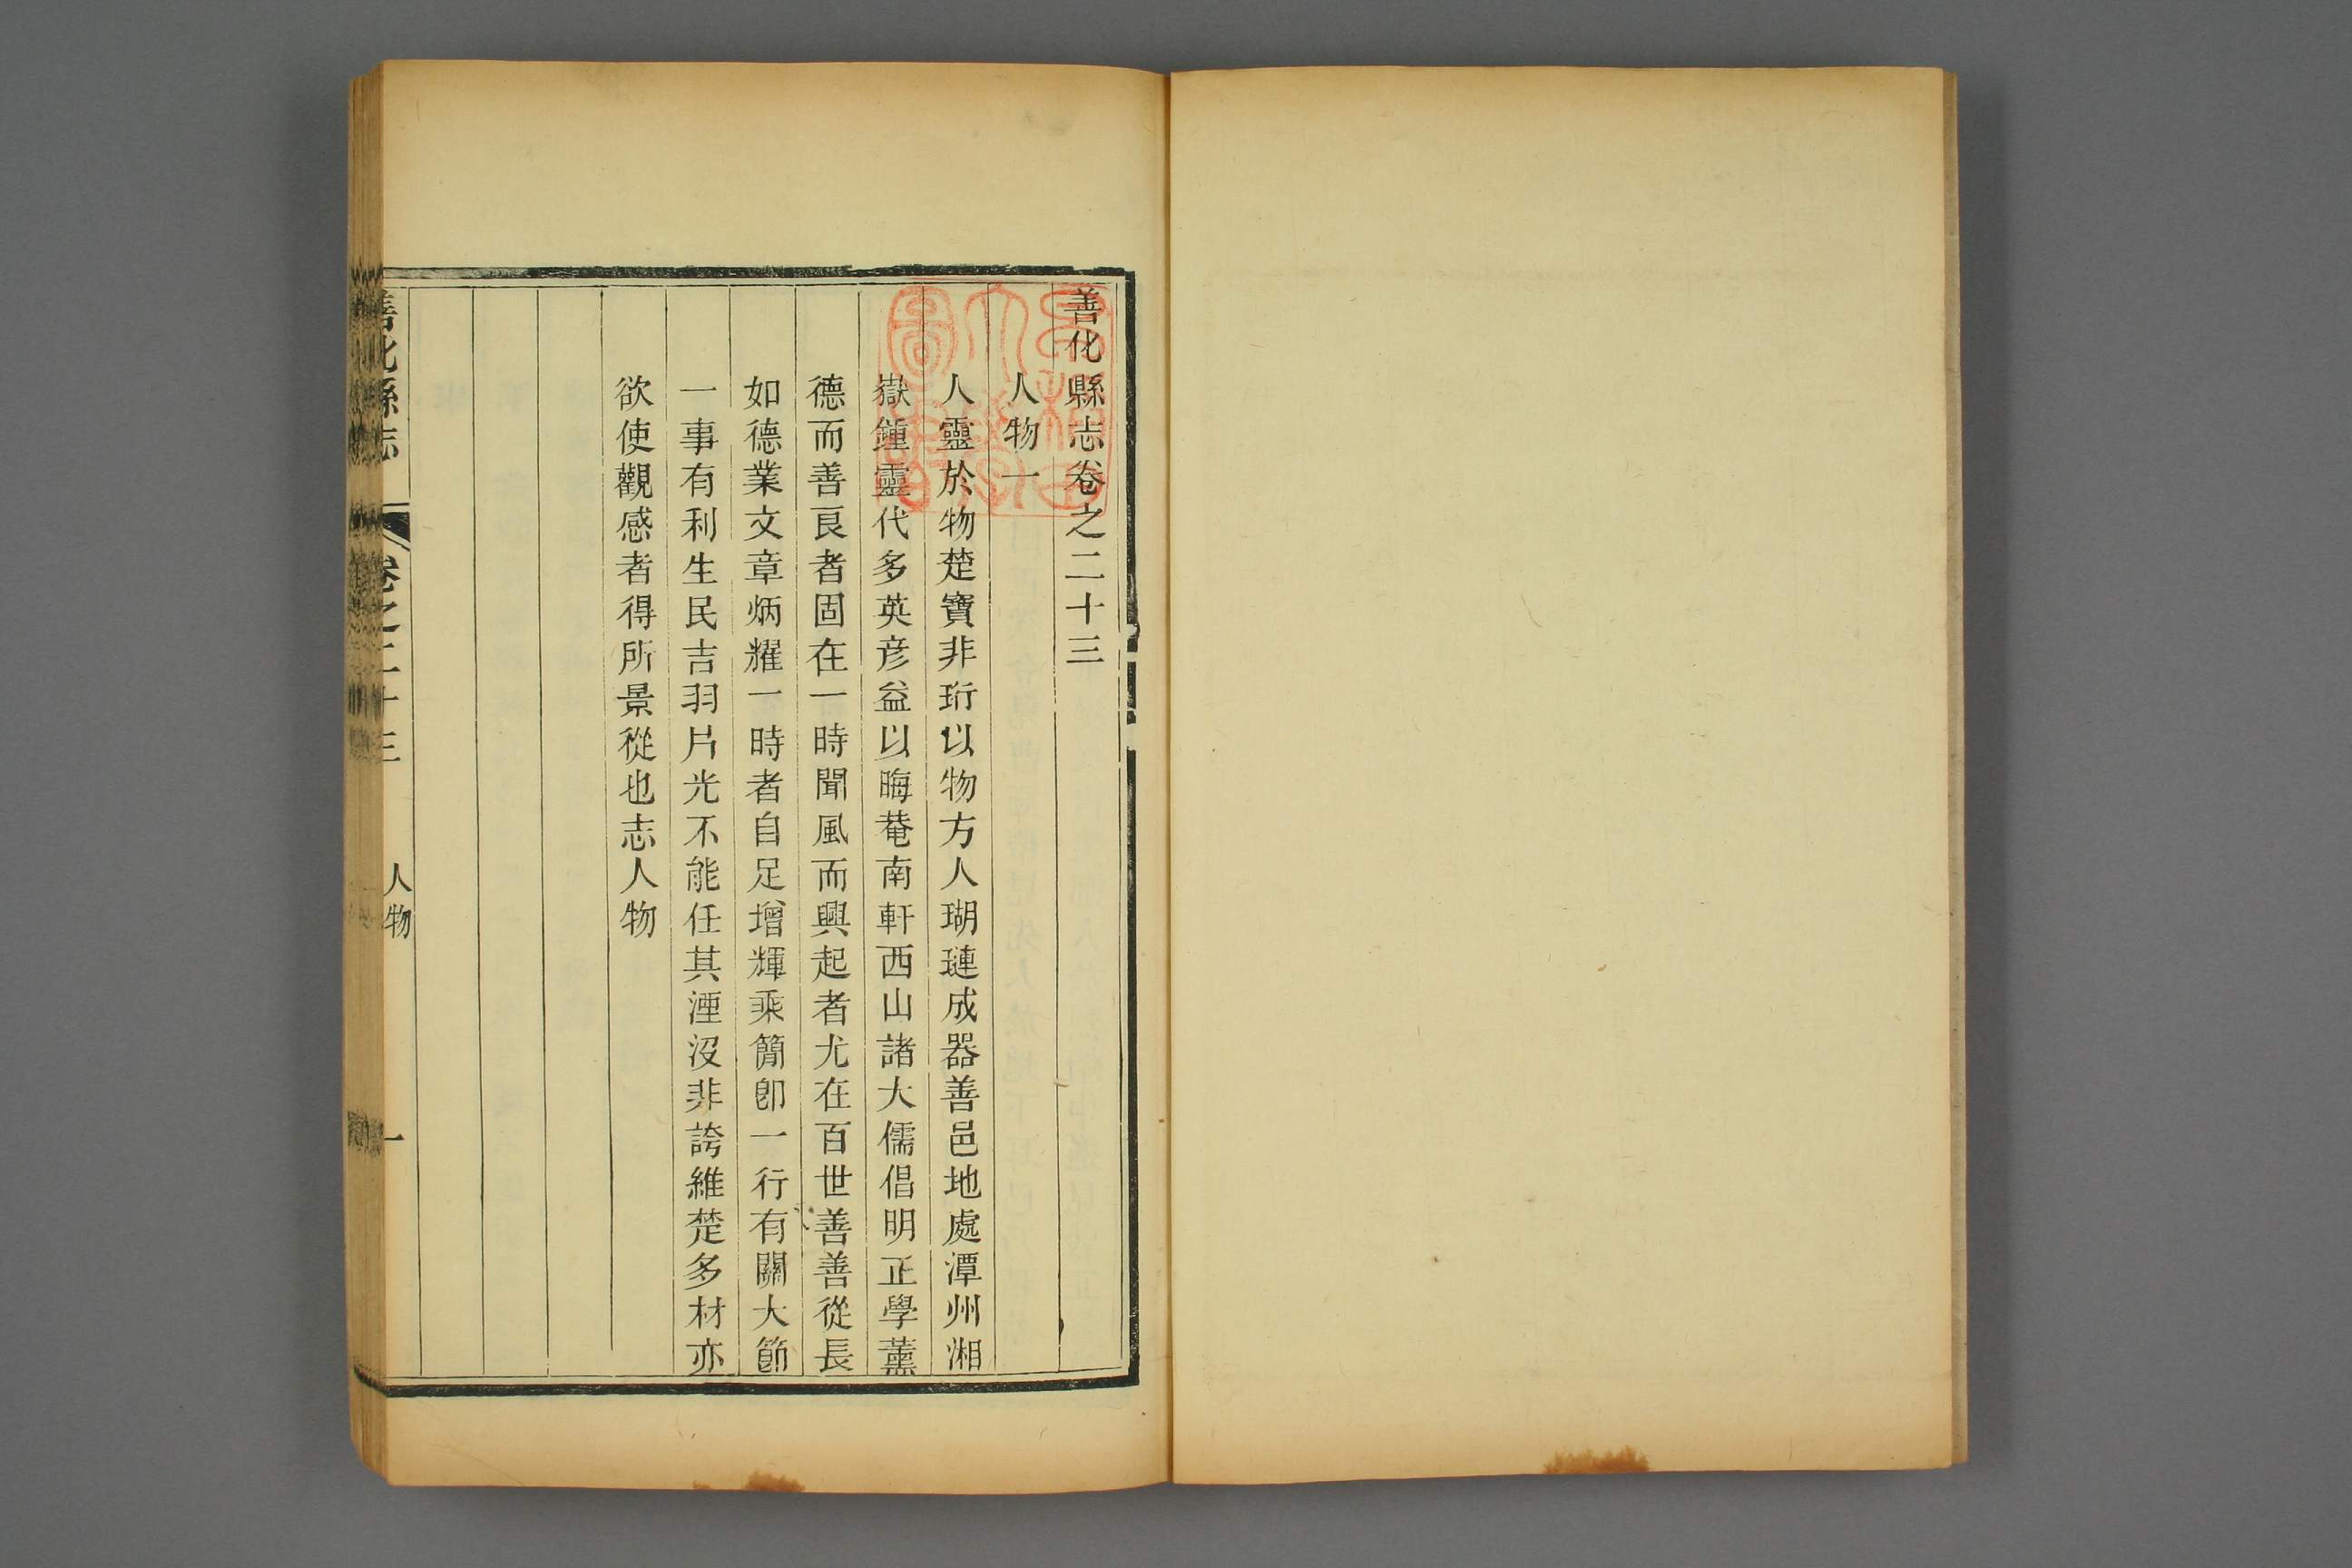 善化縣志卷之二十三
人物一
人靈於物楚寶非珩以物方人瑚璉成器善邑地處潭州湘
嶽鍾靈代多英彦益以晦菴南軒西山諸大儒倡明正學薰
德而善良者固在一時聞風而興起者尤在百世善善從長
如德業文章炳耀一時者自足增輝乘簡卽一行有關大節
一事有利生民吉羽片光不能任其湮沒非誇維楚多材亦
欲使觀感者得所景從也志人物
善化縣志 卷之二十三 人物 一